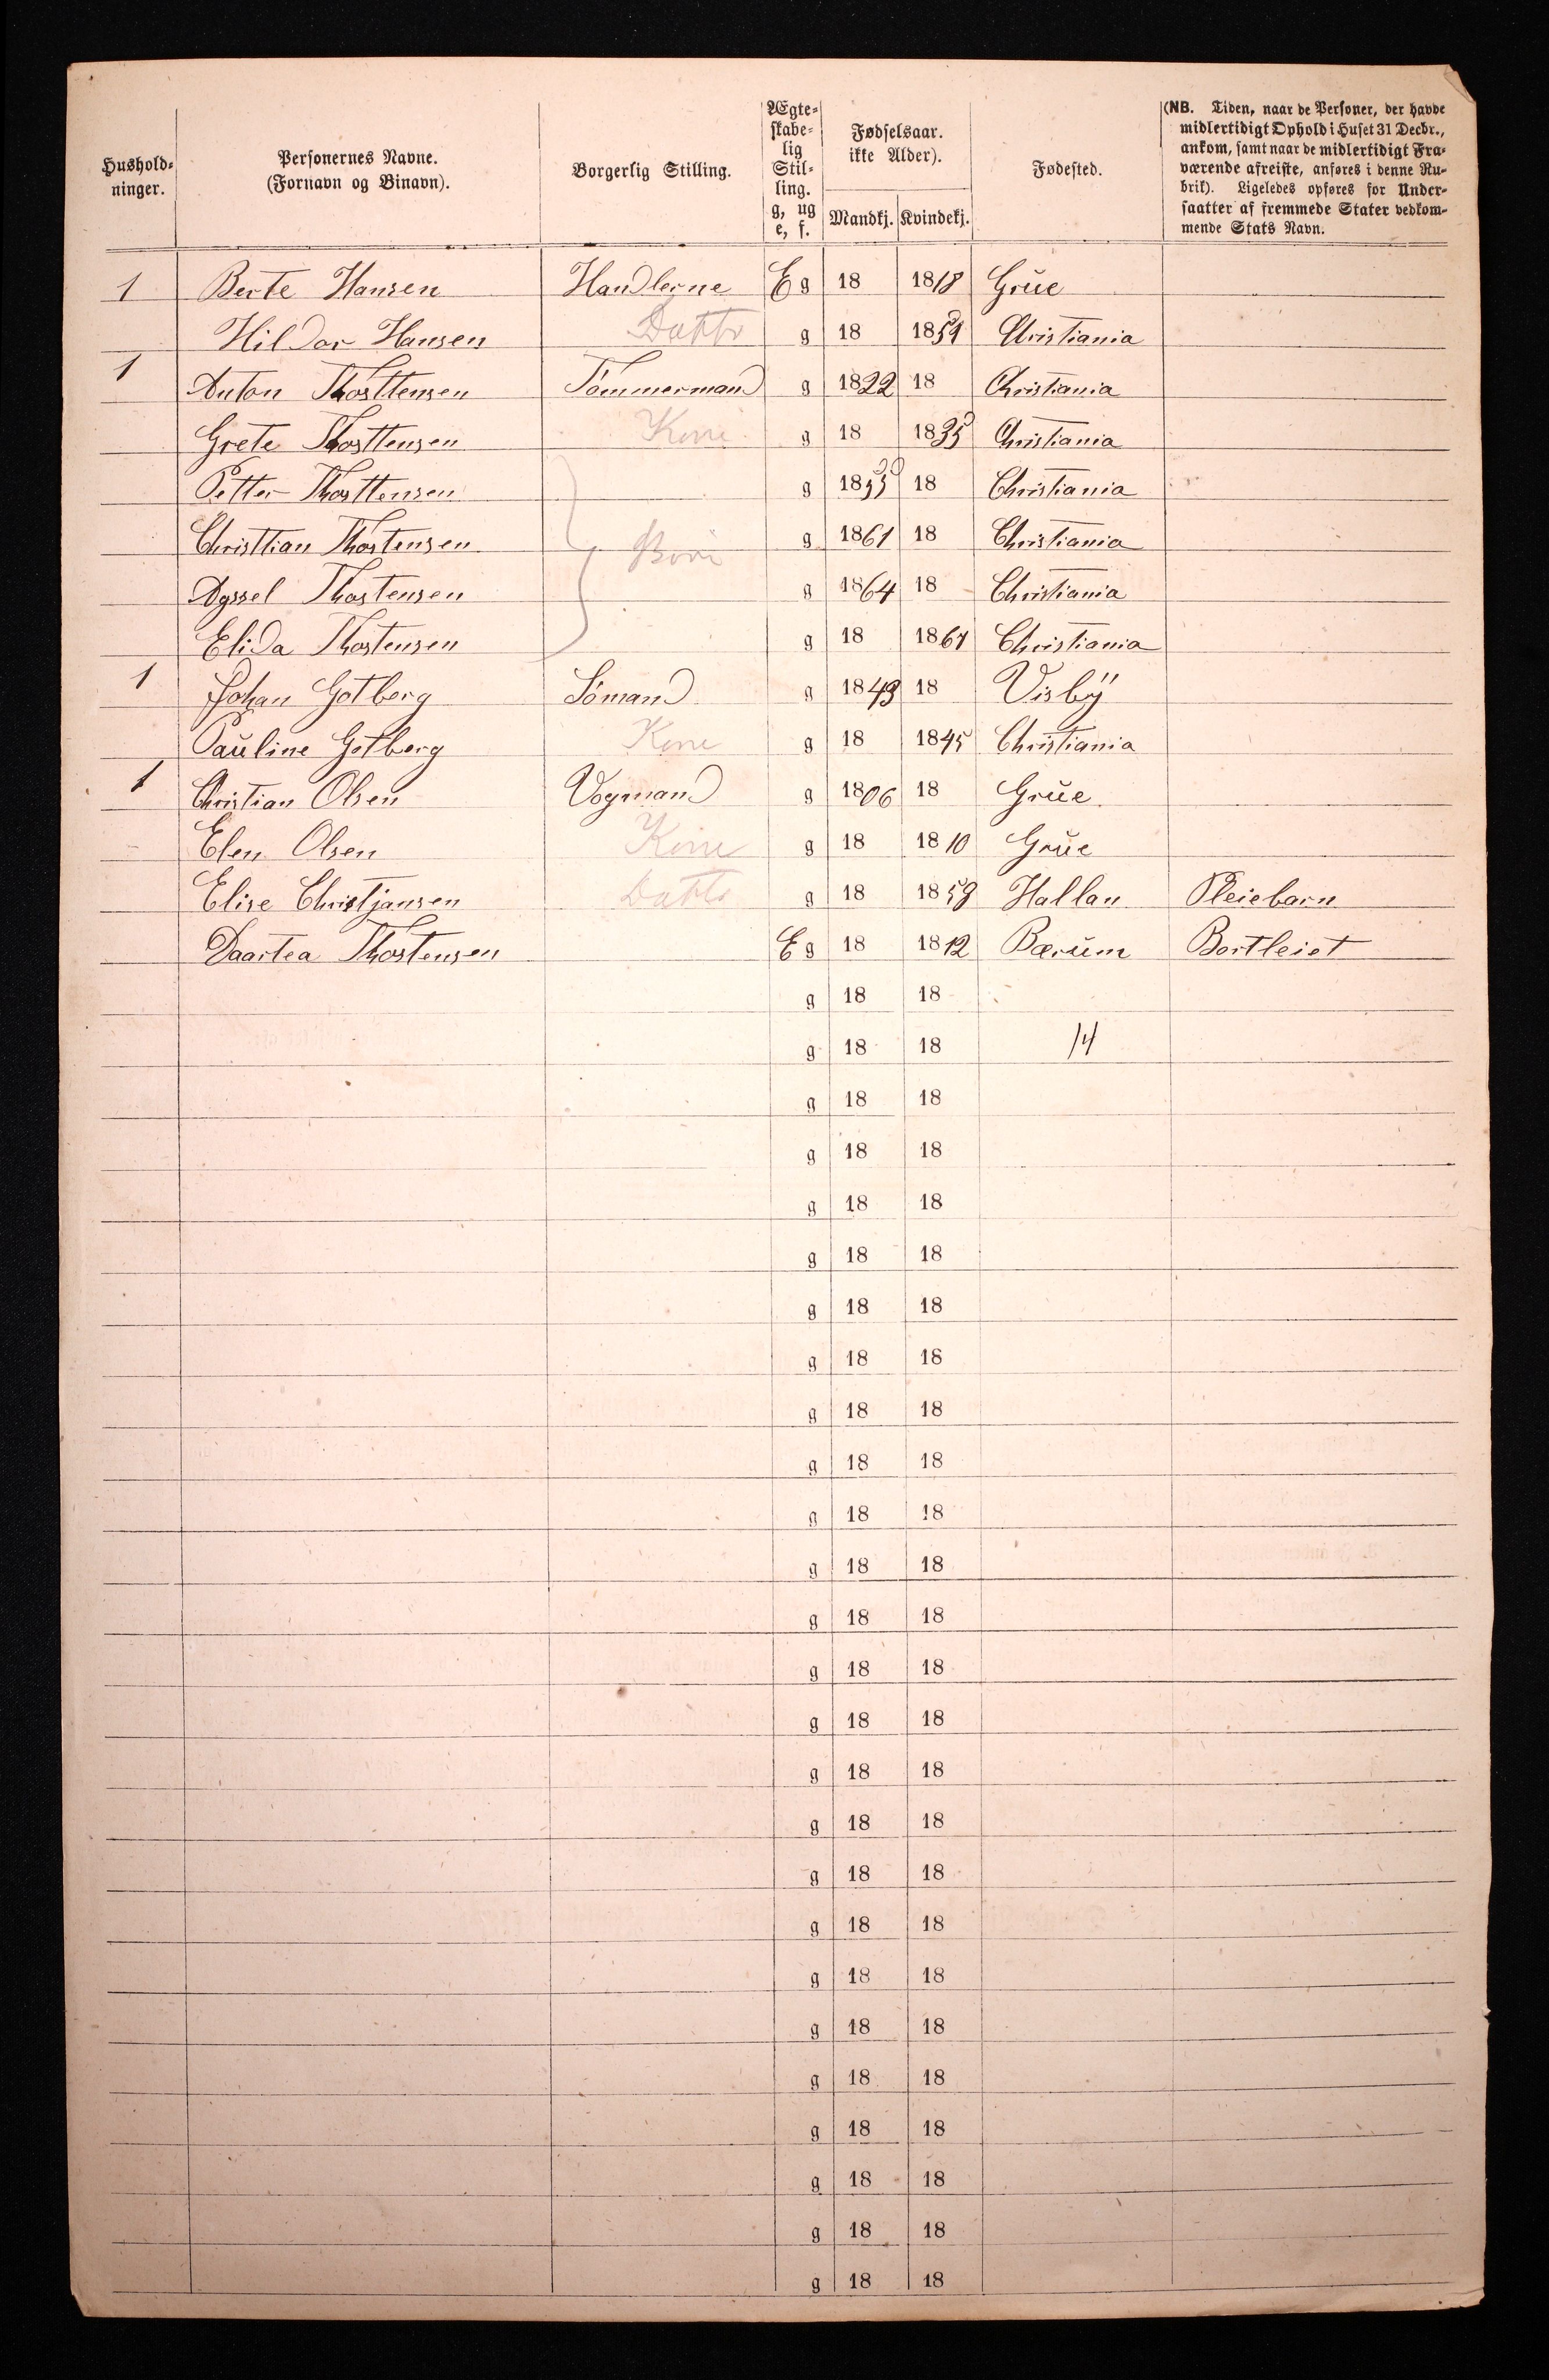 Hushold-
ninger.
Personernes Navne.
(Fornavn og Binavn).
Borgerlig Stilling.
Ægte-
skabe-
lig
Stil-
ling.
g, ug
e, f.
Fødselsaar.
ikke Alder).
Mandkj. Kvindekj.
Fødested.
(NB. Tiden, naar de Personer, der havde
midlertidigt Ophold i Huset 31 Decbr.,
ankom, samt naar de midlertidigt Fra-
værende afreiste, anføres i denne Ru-
brik). Ligeledes opføres for Under-
saatter af fremmede Stater vedkom-
mende Stats Navn.
1 Berte Hansen Handlerne E g 18 1818 Grŭe
Hildar Hansen Datter g 18 1859 Christiania
1 Anton Thosttensen Tömmermand g 1822 18 Christiania
Grete Thosttensen Kone g 18 1835 Christiania
Petter Thosttensen g 1855 18 Christiania
Christtian Thostensen Børn g 1861 18 Christiania
Agssel Thostensen g 1864 18 Christiania
Elida Thostensen g 18 1867 Christiania
1 Johan Gotberg Sömand g 1843 18 Visbÿ
Paŭline Gotberg Kone g 18 1845 Christiania
1 Christian Olsen Vogmand g 1806 18 Grŭe
Elen Olsen Kone g 18 1810 Grŭe
Elise Christjansen Datter g 18 1859 Hallan Pleiebarn
Daartea Thostensen E g 18 1812 Bærŭm Bortleiet
g 18 18
g 18 18 14
g 18 18
g 18 18
g 18 18
g 18 18
g 18 18
g 18 18
g 18 18
g 18 18
g 18 18
g 18 18
g 18 18
g 18 18
g 18 18
g 18 18
g 18 18
g 18 18
g 18 18
g 18 18
g 18 18
g 18 18
g 18 18
g 18 18
g 18 18
g 18 18